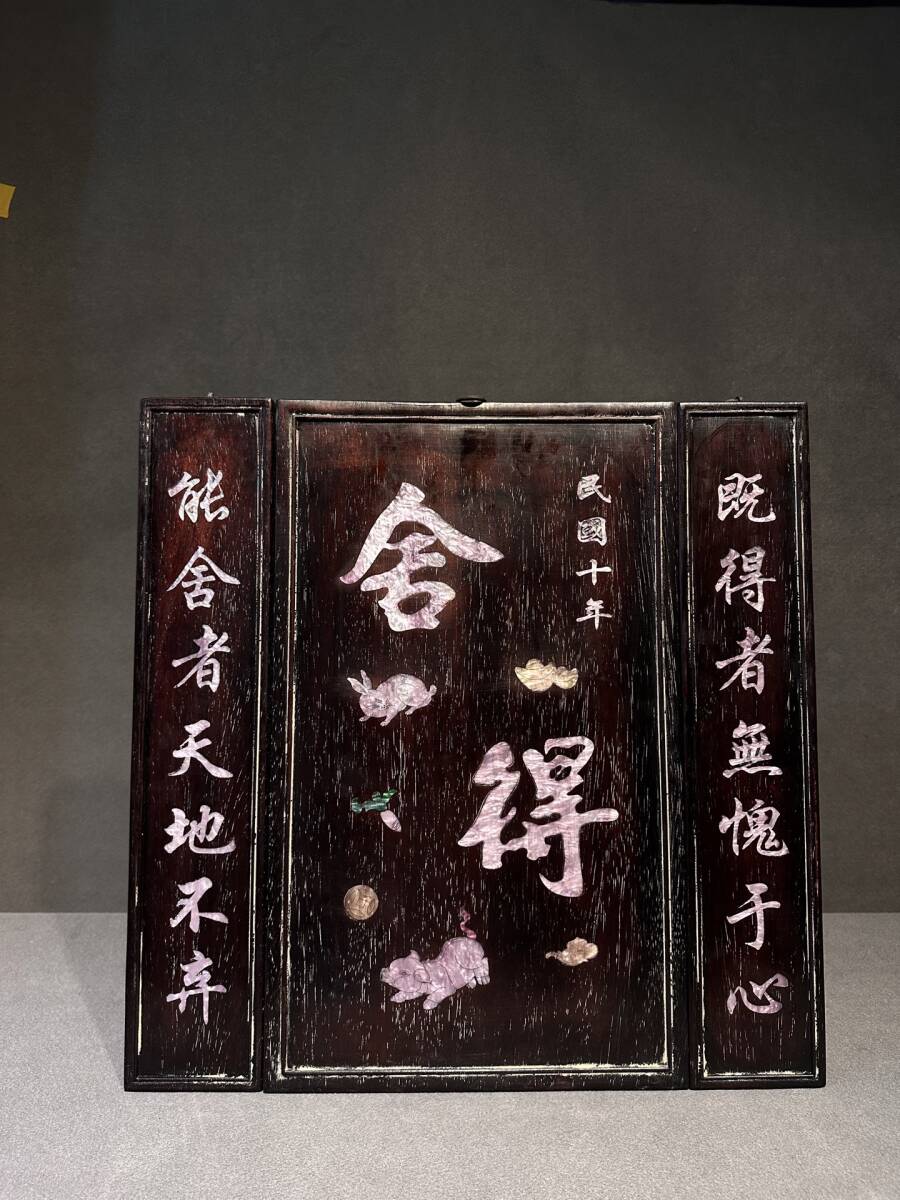 既得者無愧于心
民國十年
舍得
能舍者天地不弃